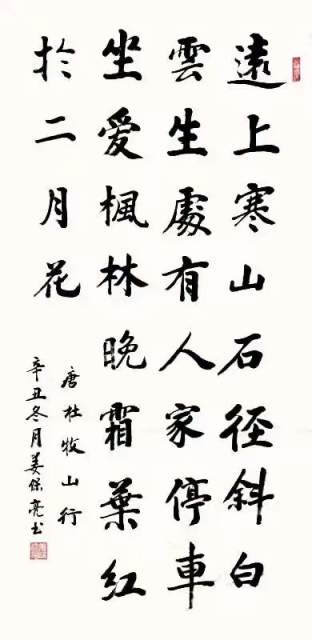 遠上寒山石径斜白
雲生處有人家停車
坐爱楓林晚霜葉红
於二月花
唐杜牧山行
辛丑冬月姜保亮书